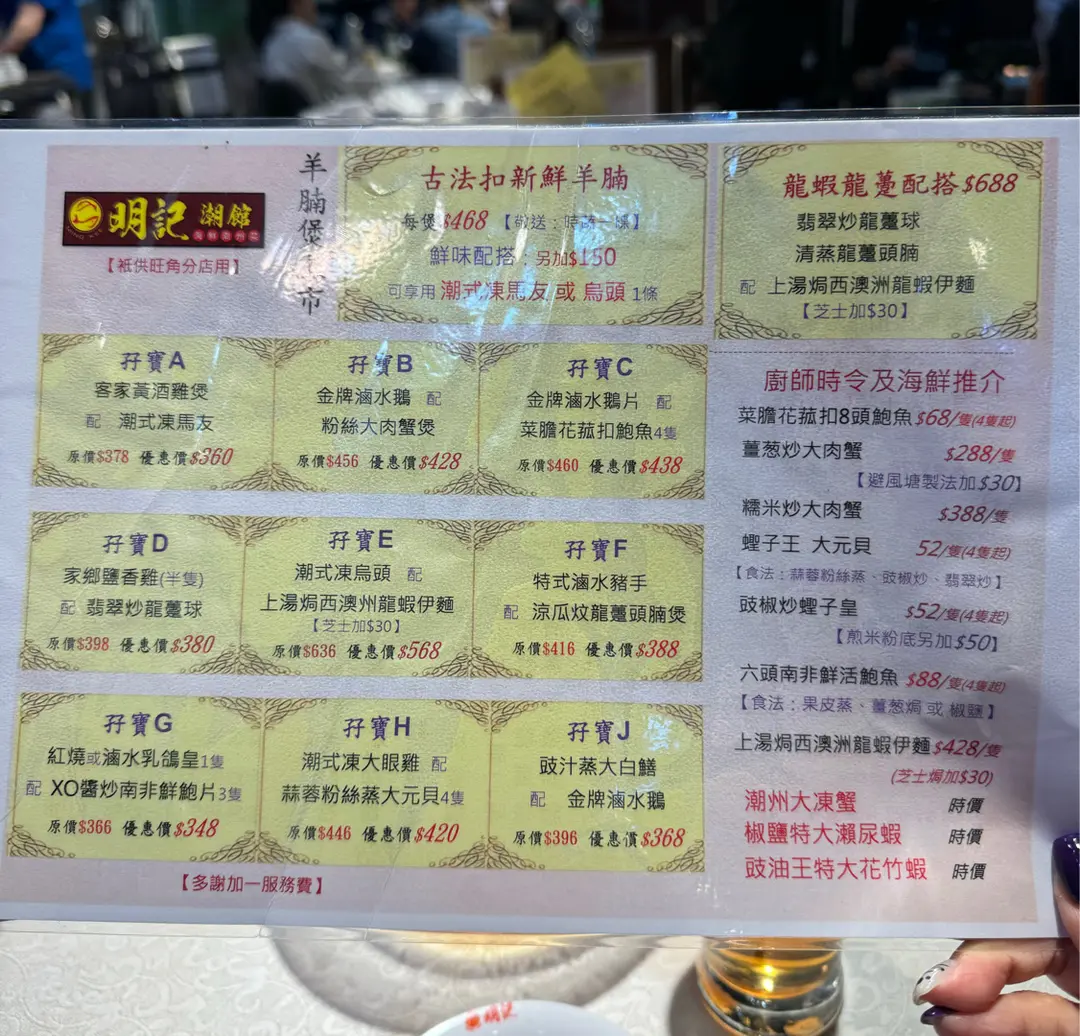 明記 潮館
海鮮潮州菜
【衹供旺角分店用】
羊腩煲 市
古法扣新鮮羊腩
每煲$468 【敬送：時蔬一碟】
鮮味配搭：另加$150
可享用 潮式凍馬友 或 烏頭 1條
龍蝦龍躉配搭 $688
翡翠炒龍躉球
清蒸龍躉頭腩
配 上湯焗西澳洲龍蝦伊麵
【芝士加$30】
孖寶A
客家黃酒雞煲
配 潮式凍馬友
原價$378 優惠價$360
孖寶B
金牌滷水鵝 配
粉絲大肉蟹煲
原價$456 優惠價$428
孖寶C
金牌滷水鵝片 配
菜膽花菰扣鮑魚4隻
原價$460 優惠價$438
孖寶D
家鄉鹽香雞(半隻)
配 翡翠炒龍躉球
原價$398 優惠價$380
孖寶E
潮式凍烏頭 配
上湯焗西澳州龍蝦伊麵
【芝士加$30】
原價$636 優惠價$568
孖寶F
特式滷水豬手
配 涼瓜炆龍躉頭腩煲
原價$416 優惠價$388
孖寶G
紅燒或滷水乳鴿皇1隻
配 XO醬炒南非鮮鮑片3隻
原價$366 優惠價$348
孖寶H
潮式凍大眼雞 配
蒜蓉粉絲蒸大元貝4隻
原價$446 優惠價$420
孖寶J
豉汁蒸大白鱔
配 金牌滷水鵝
原價$396 優惠價$368
【多謝加一服務費】
廚師時令及海鮮推介
菜膽花菰扣8頭鮑魚 $68/隻(4隻起)
薑葱炒大肉蟹 $288/隻
【避風塘製法加$30】
糯米炒大肉蟹 $388/隻
蟶子王 大元貝 52/隻(4隻起)
【食法：蒜蓉粉絲蒸、豉椒炒、翡翠炒】
豉椒炒蟶子皇 $52/隻(4隻起)
【煎米粉底另加$50】
六頭南非鮮活鮑魚 $88/隻(4隻起)
【食法：果皮蒸、薑葱焗 或 椒鹽】
上湯焗西澳洲龍蝦伊麵 $428/隻
(芝士焗加$30)
潮州大凍蟹 時價
椒鹽特大瀨尿蝦 時價
豉油王特大花竹蝦 時價
明記